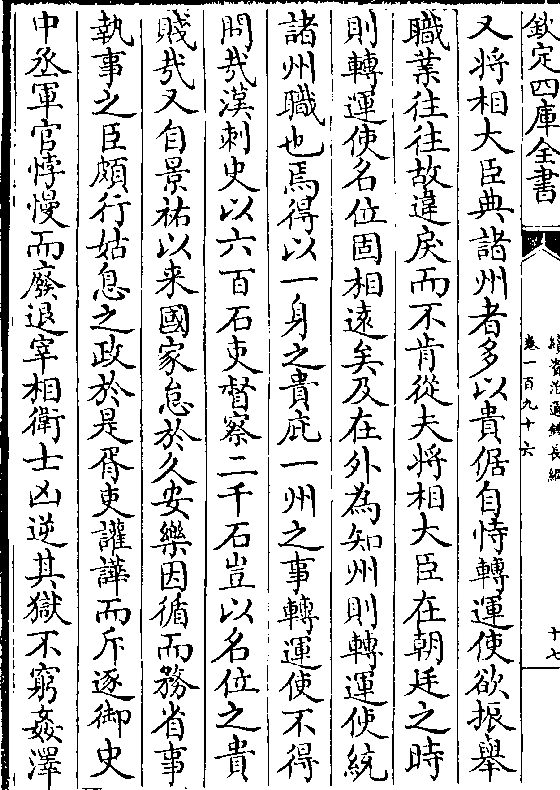 欽定四庫全書
續資治通鑑長編
卷一百九十六
十七
又將相大臣典諸州者多以貴倨自恃轉運使欲振舉
職業往往故違戾而不肯從夫將相大臣在朝廷之時
則轉運使名位固相遠矣及在外為知州則轉運使統
諸州職也焉得以一身之貴庇一州之事轉運使不得
問㢤漢刺史以六百石吏督察二千石豈以名位之貴
賤㢤又自景祐以来國家怠於久安樂因循而務省事
執事之臣頗行姑息之政於是胥吏讙譁而斥逐御史
中丞軍官悖慢而廢退宰相衛士凶逆其獄不窮姦澤